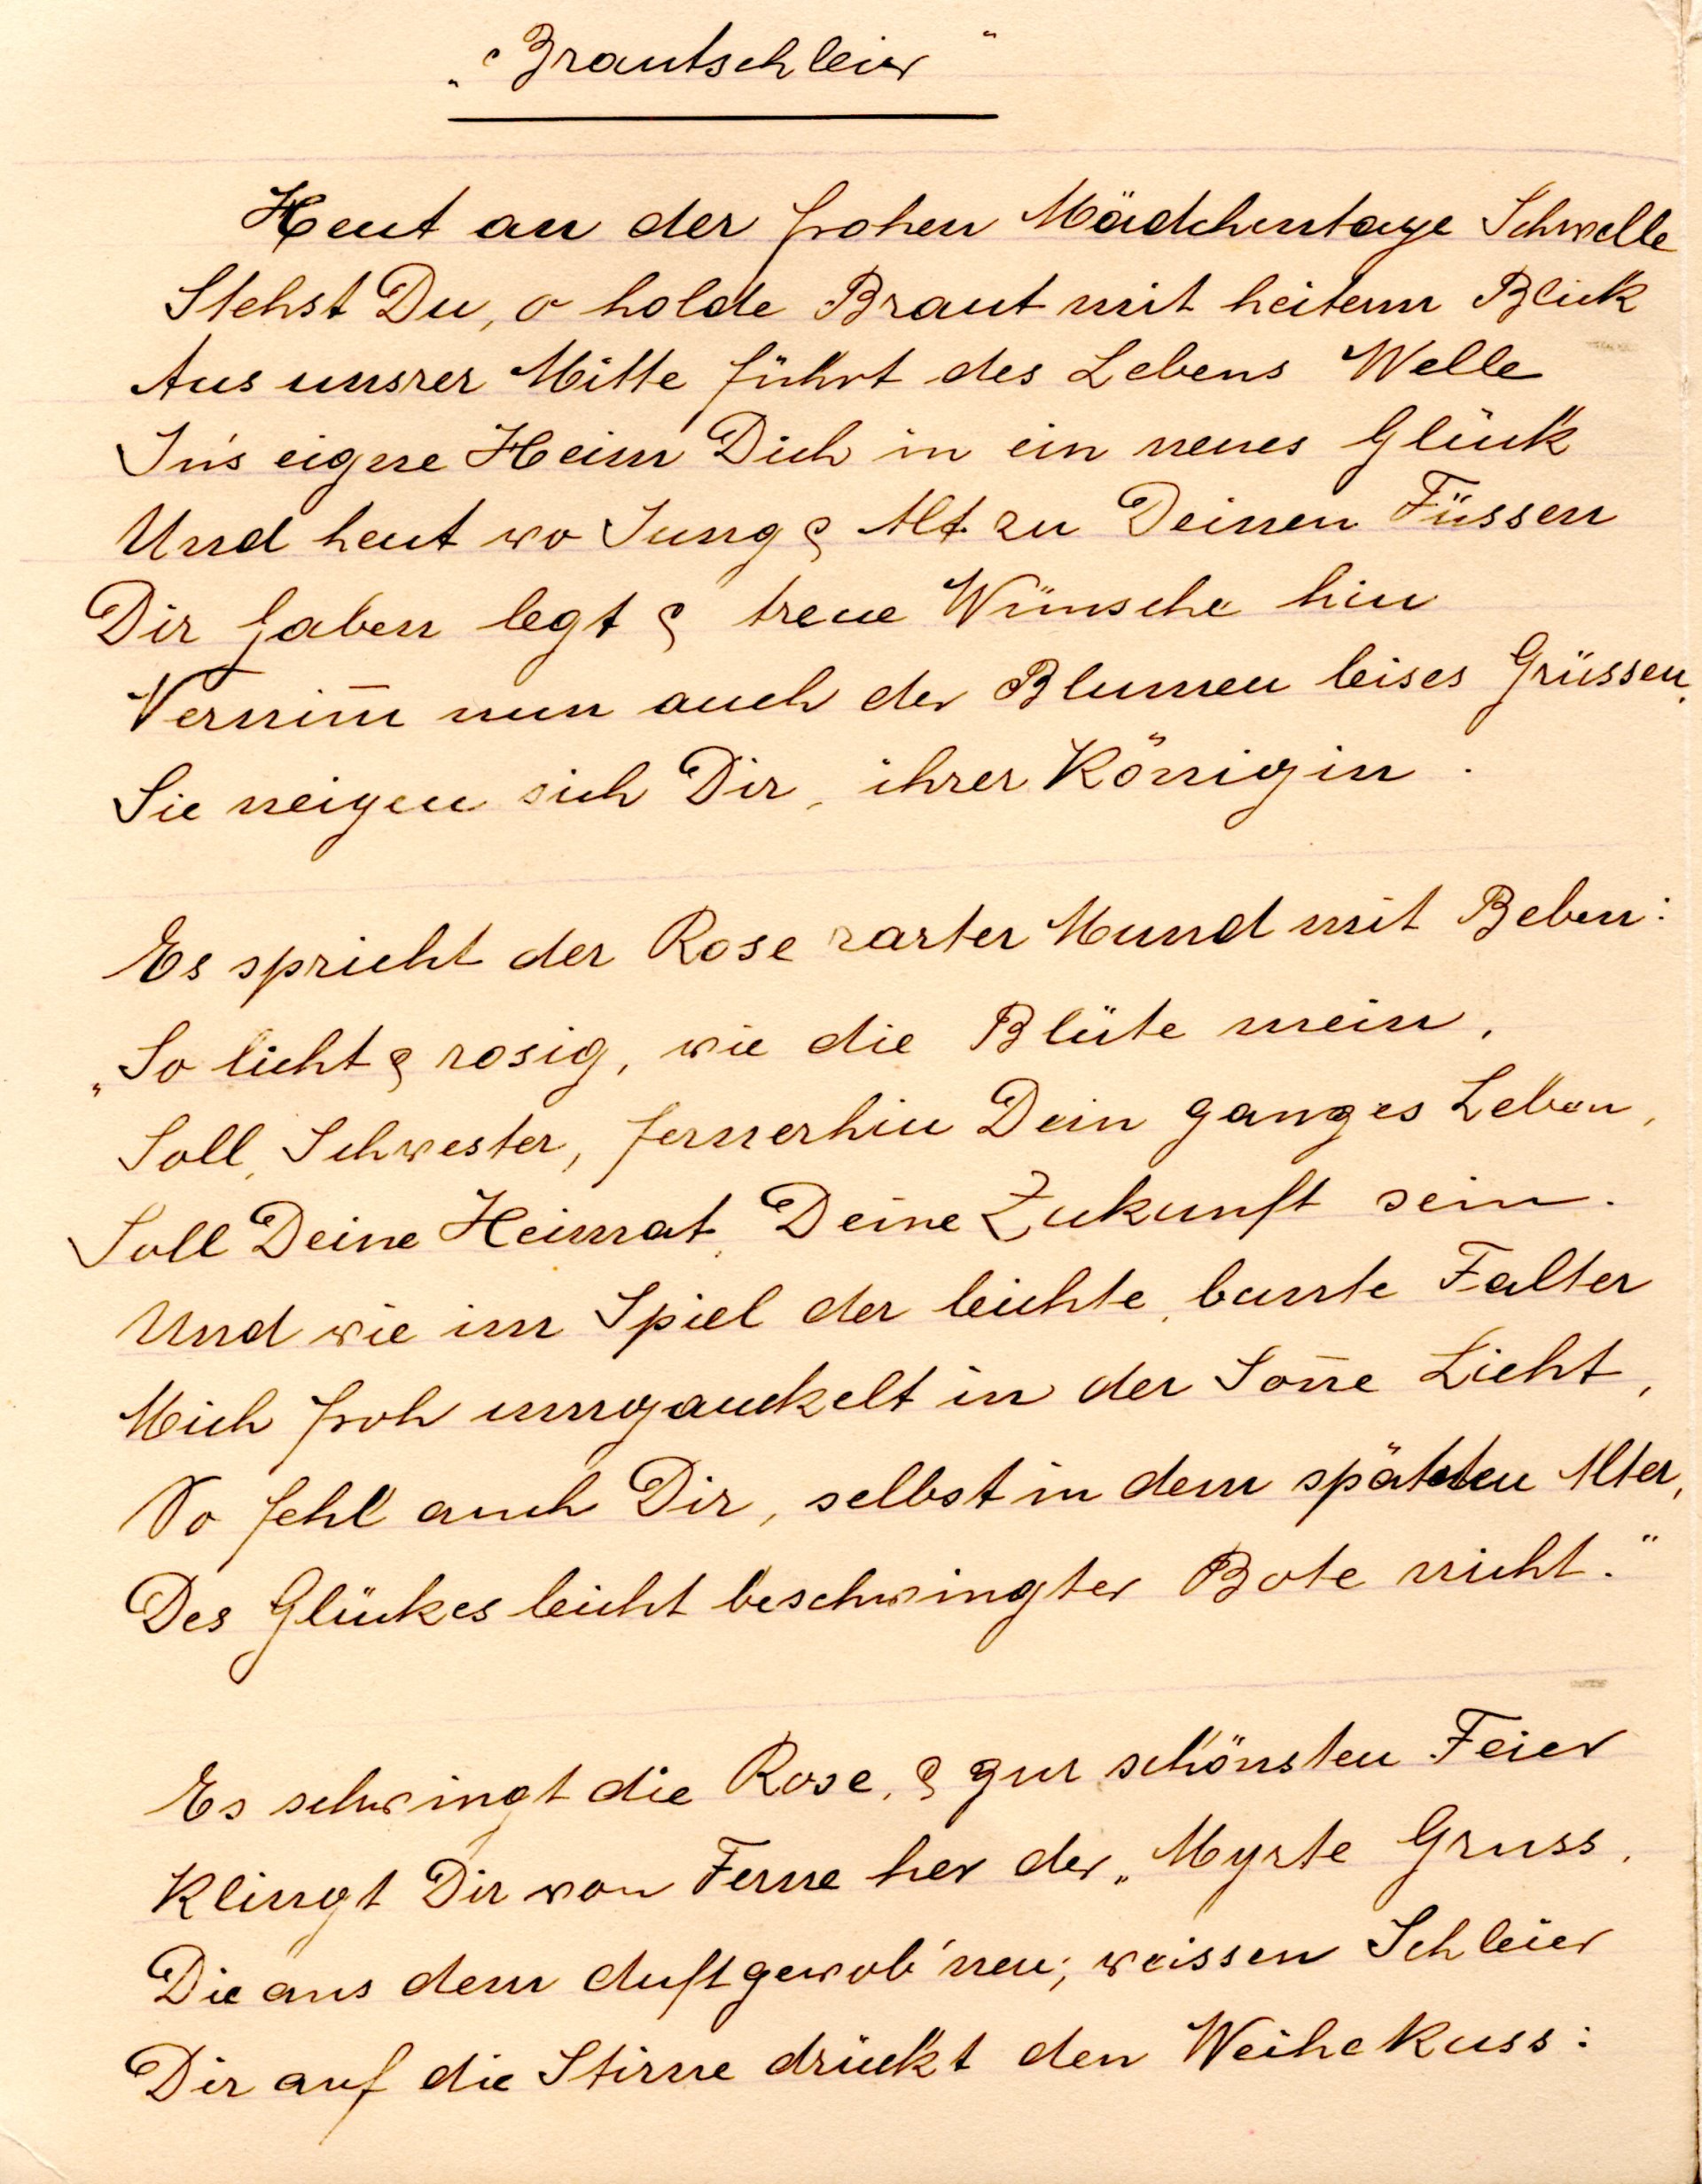 „Brautschleier“
Heut an der frohen Mädchentage Schwelle
Stehst Du, o holde Braut mit heiterm Blick
Aus unsrer Mitte führt des Lebens Welle
In's eigne Heim Dich in ein neues Glück
Und heut wo Jung & Alt zu Deinen Füssen
Dir Gaben legt & treue Wünsche hin
Vernim̅ nun auch der Blumen leises Grüssen,
Sie neigen sich Dir, ihrer Königin.
Es spricht der Rose zarter Mund mit Beben:
„So licht & rosig, wie die Blüte mein,
Soll, Schwester, fernerhin Dein ganzes Leben,
Soll Deine Heimat, Deine Zukunft sein.
Und wie im Spiel der leichte, bunte Falter
Mich froh umgauckelt in der Son̅e Licht,
So fehl auch Dir, selbst in dem späten Alter,
Des Glückes leicht beschwingter Bote nicht.“
Es schwingt die Rose, & zur schönsten Feier
Klingt Dir von Ferne her der „Myrte Gruss,
Die aus dem duftgewob'nen, weissen Schleier
Dir auf die Stirne drückt den Weihekuss: